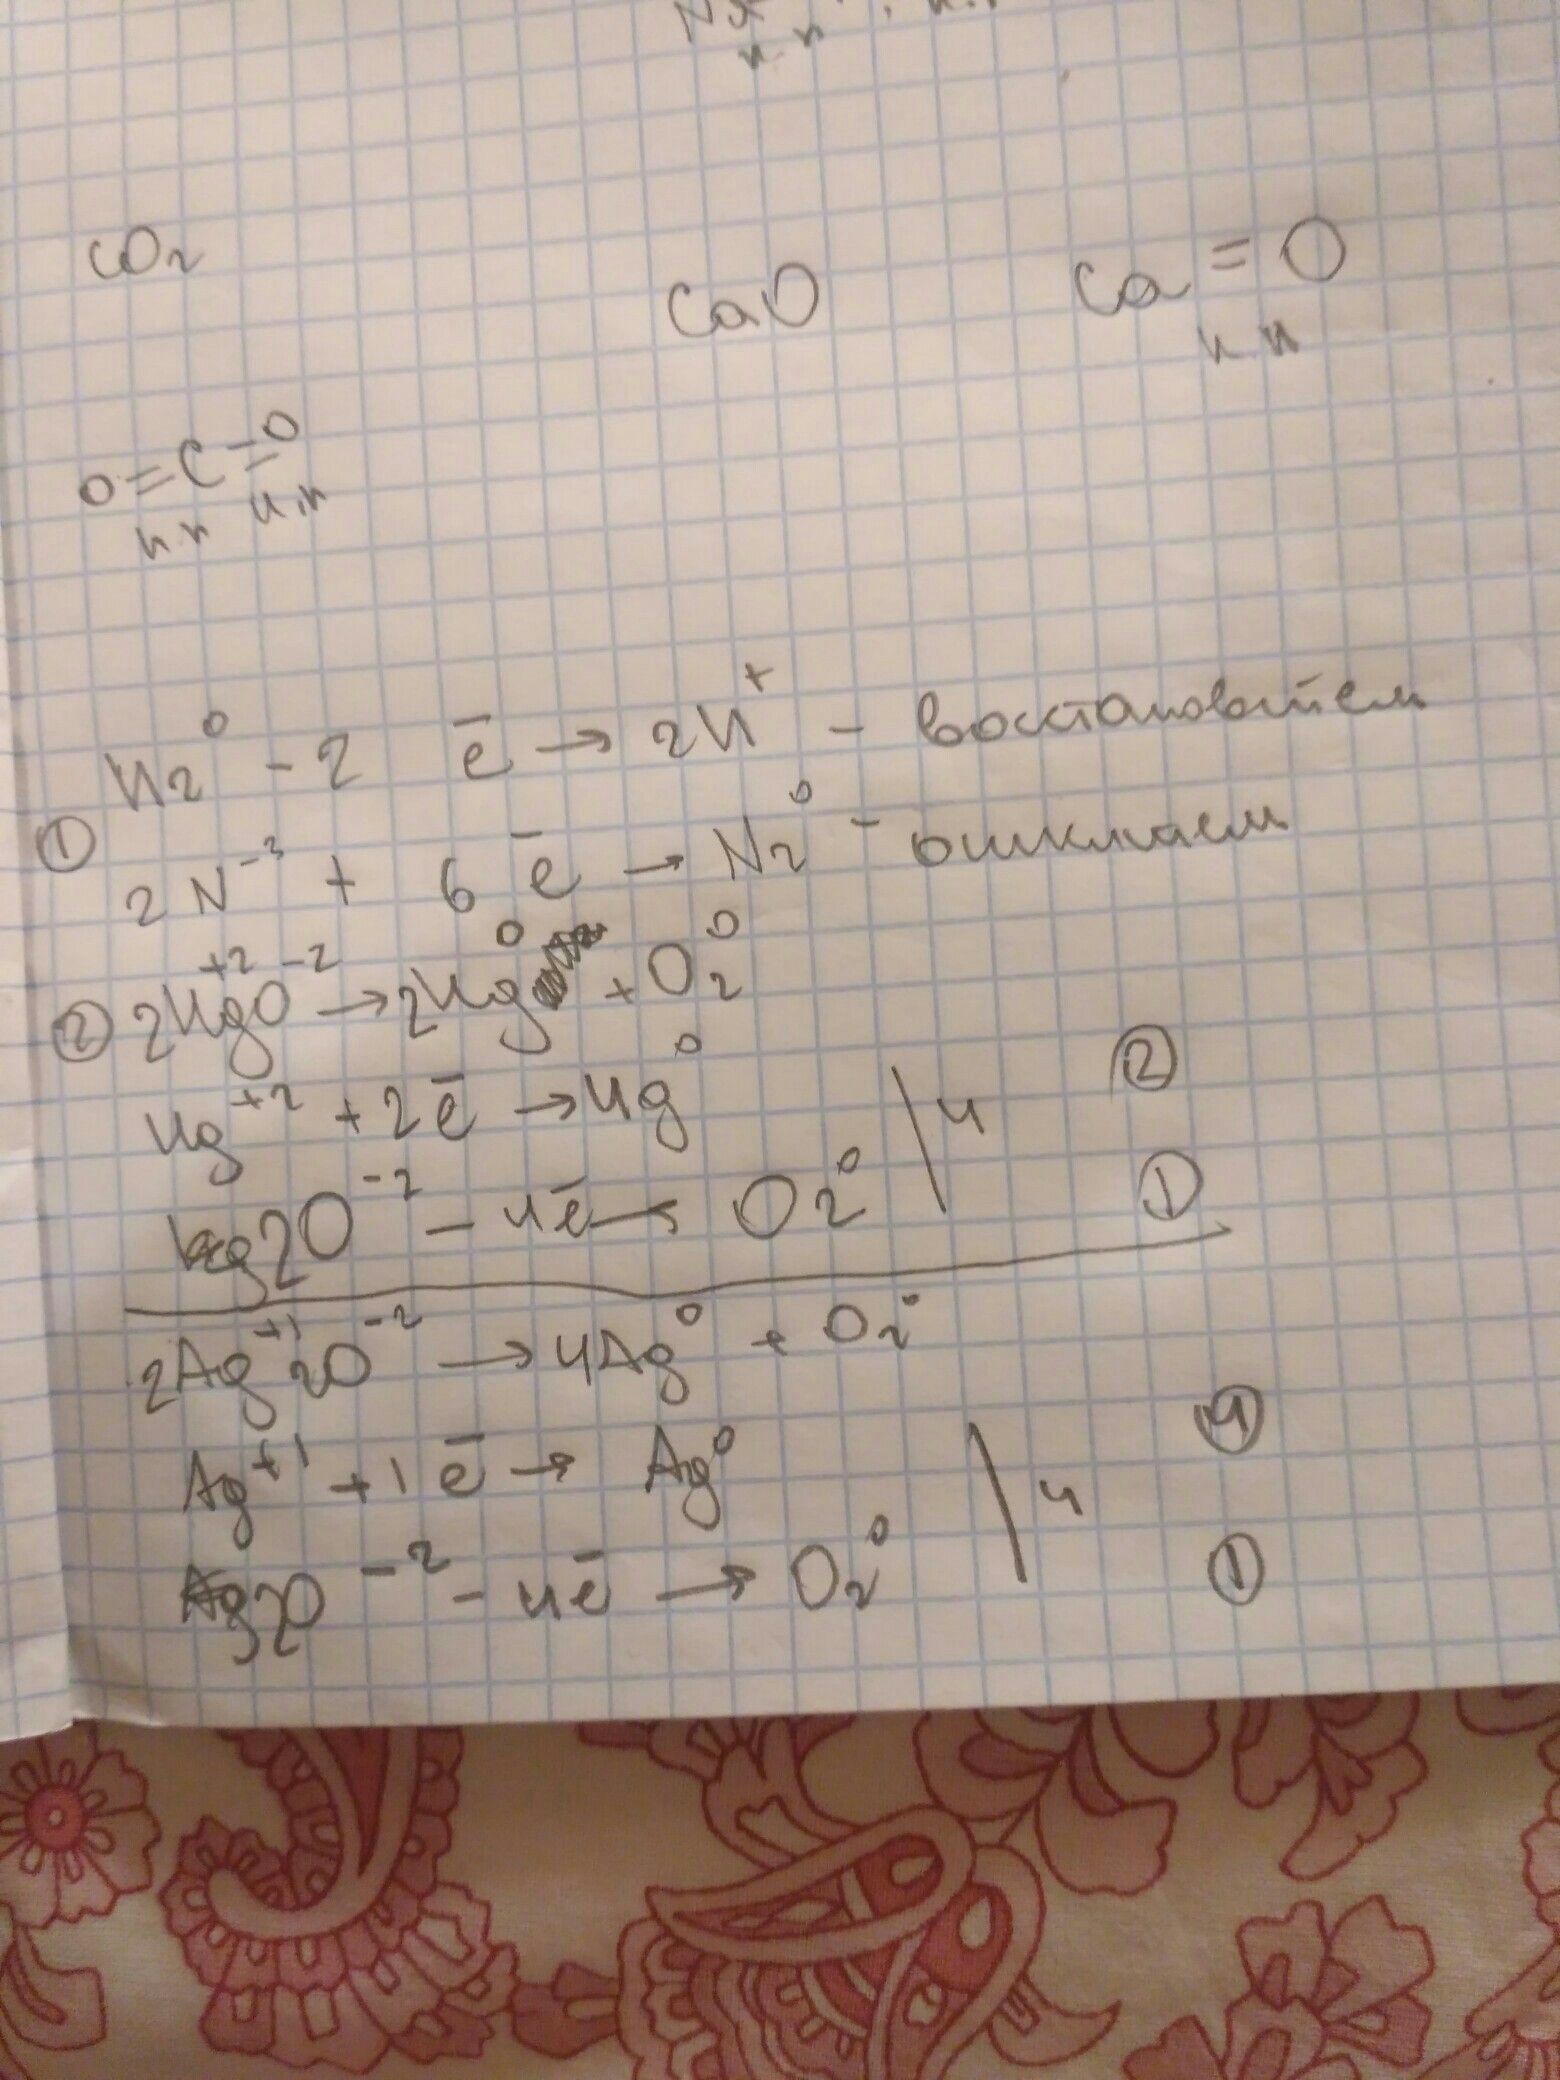 CO₂
CaO
Ca = O
к н
O=C=O
к.н к.н
H₂⁰ - 2 e̅ → 2H⁺ - восстановитем
①
2 N⁻³ + 6 e̅ → N₂⁰ -
② 2Hg⁺²O⁻² → 2Hg⁰ + O₂⁰
Hg⁺² + 2e̅ → Hg⁰ | 4 ②
2O⁻² - 4e̅ → O₂⁰ ①
2Ag⁺¹₂O⁻² → 4Ag⁰ + O₂⁰
Ag⁺¹ + 1 e̅ → Ag⁰ | 4 ④
2O⁻² - 4e̅ → O₂⁰ ①